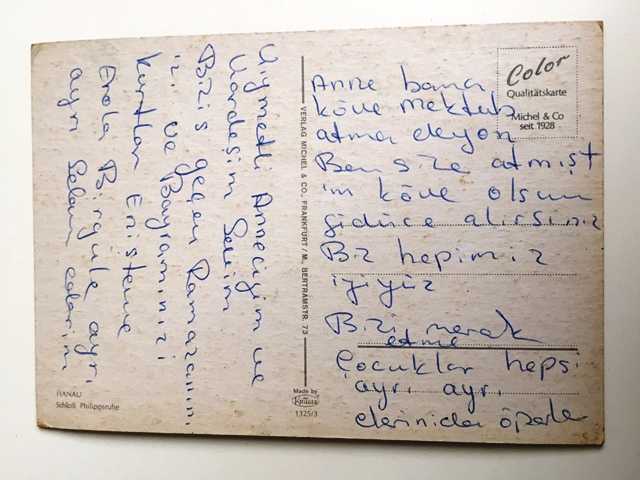 Kıymetli Anneciğim ve
Kardeşim Selim
Bizis geçen Ramazanın
izi ve Bayramınızı
kutlar Enisteme
Erola Birgüle ayrı
ayrı Selam ederim
HANAU
Schloß Philippsruhe
VERLAG MICHEL & CO., FRANKFURT/M., BERTRAMSTR. 73
Made by
Krüger
1325/3
Color
Qualitätskarte
Michel & Co
seit 1928
Anne bana
köve mektub
atma deyon
Ben size atmişt
im köve olsun
gidince alirsiniz
Biz hepimiz
iyiyiz
Bizi merak
etme
Çocuklar hepsi
ayrı ayrı
elerinden öperler